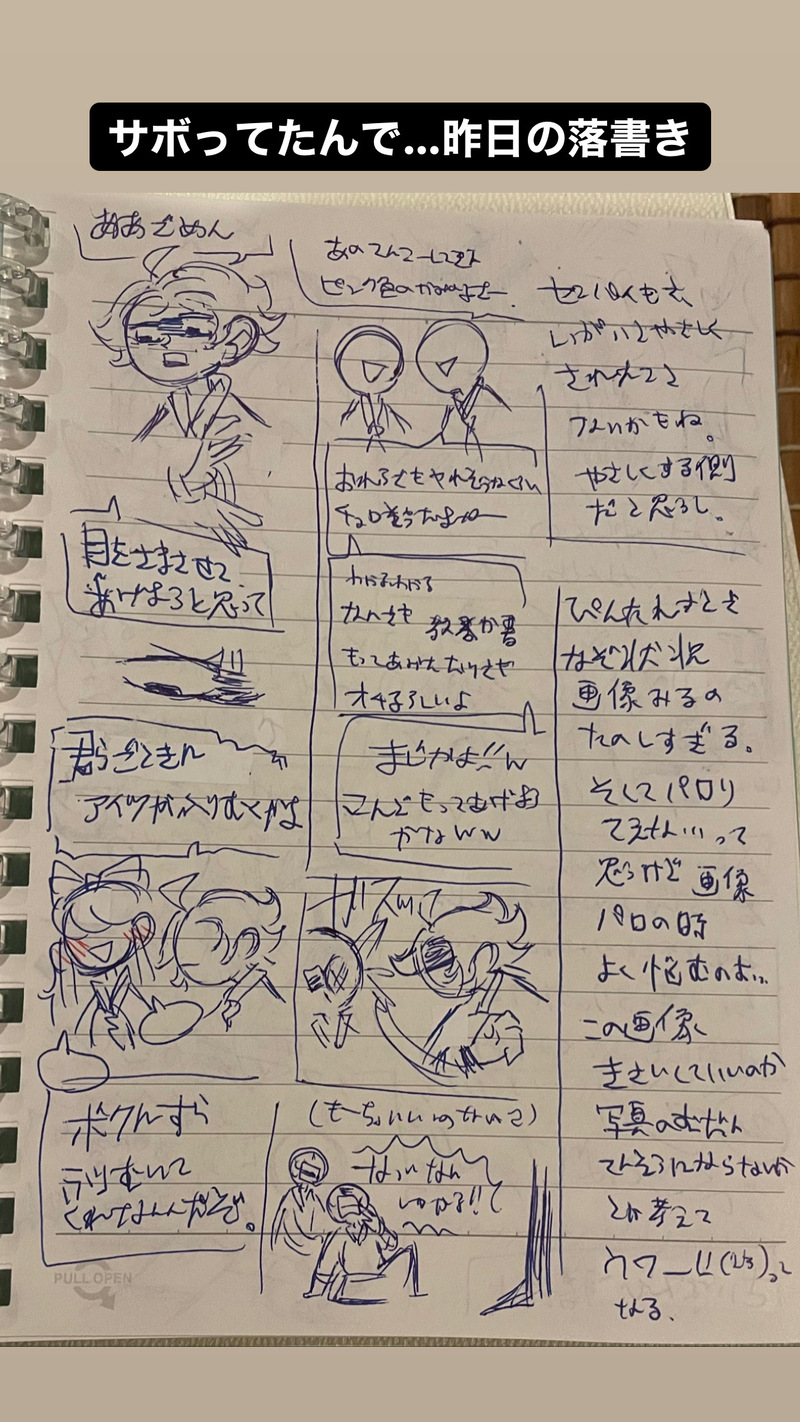 サボってたんで...昨日の落書き
ああごめん
あのてんこーしてきた
ピンク色のかみのよさー
センパイもさ、
いがいとやさしく
されれてさ
ないかもね。
やさしくする側
だと思うし。
おれらでもヤれそうなくらい
チョロそうだよなー
わかるわかる
なんでも 教科書
もってあげたたけでや
オチるらしいよ
まじかよ!!w
こんどもってあげよ
かなww
目をさまさせて
あげようと思って
君らごときに
アイツがふりむくかよ
ガスッ
ボクんすら
ふりむいて
くれないんだぞ。
(もーちょいいいのないの?)
なっ なん
いかる!!て
ぴんたれすとで
なぞ状況
画像みるの
たのしすぎる。
そしてパロり
てえない!!って
思うけど 画像
パロの時
よく悩むのよ...
この画像、
きさいしていいのか
写真のむだん
てんさいにならないか
とか考えて
ウワー!!(泣)って
なる.
PULL OPEN